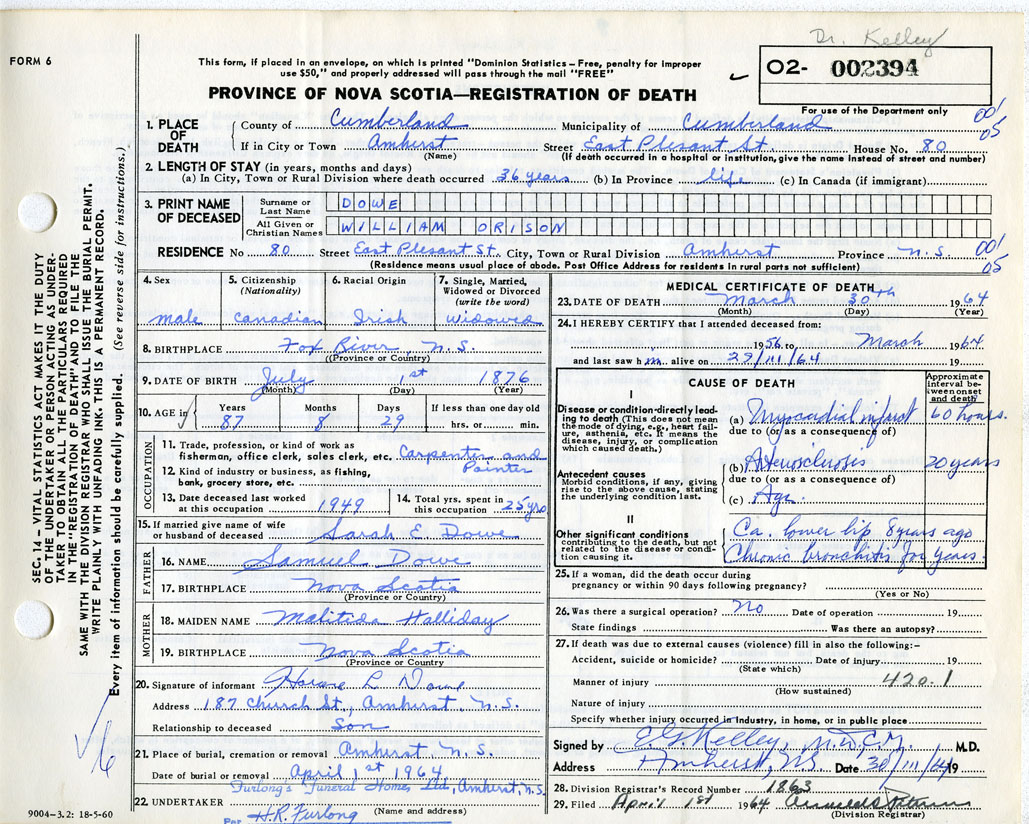 Dr. Kelley
FORM 6
This form, if placed in an envelope, on which is printed "Dominion Statistics – Free, penalty for improper
use $50," and properly addressed will pass through the mail "FREE"
02- 002394
PROVINCE OF NOVA SCOTIA—REGISTRATION OF DEATH
For use of the Department only
1. PLACE OF DEATH County of Cumberland Municipality of Cumberland 001
If in City or Town Amherst Street East Plesant St. House No. 80 05
(Name) (If death occurred in a hospital or institution, give the name instead of street and number)
2. LENGTH OF STAY (in years, months and days)
(a) In City, Town or Rural Division where death occurred 36 years (b) In Province life (c) In Canada (if immigrant)
3. PRINT NAME OF DECEASED
Surname or Last Name DOWE
All Given or Christian Names WILLIAM ORISON
RESIDENCE No 80 Street East Plesant St. City, Town or Rural Division Amherst Province N.S. 001
(Residence means usual place of abode. Post Office Address for residents in rural parts not sufficient) 05
4. Sex male
5. Citizenship (Nationality) Canadian
6. Racial Origin Irish
7. Single, Married, Widowed or Divorced (write the word) Widowed
8. BIRTHPLACE Fox River, N.S.
(Province or Country)
9. DATE OF BIRTH July 1st 1876
(Month) (Day) (Year)
10. AGE in Years Months Days If less than one day old
87 8 29 hrs. or min.
OCCUPATION
11. Trade, profession, or kind of work as
fisherman, office clerk, sales clerk, etc. Carpenter and
Painter
12. Kind of industry or business, as fishing,
bank, grocery store, etc.
13. Date deceased last worked at this occupation 1949
14. Total yrs. spent in this occupation 25 yrs
15. If married give name of wife
or husband of deceased Sarah E. Dowe
FATHER
16. NAME Samuel Dowe
17. BIRTHPLACE Nova Scotia
(Province or Country)
MOTHER
18. MAIDEN NAME Matitida Halliday
19. BIRTHPLACE Nova Scotia
(Province or Country)
20. Signature of informant Horace L Dowe
Address 187 Church St, Amherst, N.S.
Relationship to deceased Son
21. Place of burial, cremation or removal Amherst N.S.
Date of burial or removal April 1st 1964
Furlong's Funeral Home Ltd, Amherst, N.S.
22. UNDERTAKER
(Name and address)
Per H.R. Furlong
9004-3.2: 18-5-60
MEDICAL CERTIFICATE OF DEATH
23. DATE OF DEATH March 30th 1964
(Month) (Day) (Year)
24. I HEREBY CERTIFY that I attended deceased from:
1956 to March 1964
and last saw him alive on 29/III/64 19
CAUSE OF DEATH
Approximate interval between onset and death
I
Disease or condition directly leading to death (This does not mean the mode of dying, e.g., heart failure, asthenia, etc. It means the disease, injury, or complication which caused death.)
(a) Myocardial infarct 60 hours.
due to (or as a consequence of)
Antecedent causes
Morbid conditions, if any, giving rise to the above cause, stating the underlying condition last.
(b) Atherosclerosis 20 years
due to (or as a consequence of)
(c) Age.
II
Other significant conditions
contributing to the death, but not related to the disease or condition causing it.
Ca. lower lip 8 years ago
Chronic bronchitis for years.
25. If a woman, did the death occur during
pregnancy or within 90 days following pregnancy?
(Yes or No)
26. Was there a surgical operation? No Date of operation 19
State findings Was there an autopsy?
27. If death was due to external causes (violence) fill in also the following:–
Accident, suicide or homicide? Date of injury 19
(State which)
Manner of injury 420.1
(How sustained)
Nature of injury
Specify whether injury occurred in industry, in home, or in public place
Signed by E.G. Kelley, M.D.C.M. M.D.
Address Amherst, N.S. Date 30/III/64 19
28. Division Registrar's Record Number 1863
29. Filed April 1st 1964
(Division Registrar)
SEC. 14 – VITAL STATISTICS ACT MAKES IT THE DUTY
OF THE UNDERTAKER OR PERSON ACTING AS UNDER-
TAKER TO OBTAIN ALL THE PARTICULARS REQUIRED
IN THE "REGISTRATION OF DEATH" AND TO FILE THE
SAME WITH THE DIVISION REGISTRAR WHO SHALL ISSUE THE BURIAL PERMIT.
WRITE PLAINLY WITH UNFADING INK—THIS IS A PERMANENT RECORD.
Every item of information should be carefully supplied. (See reverse side for instructions.)